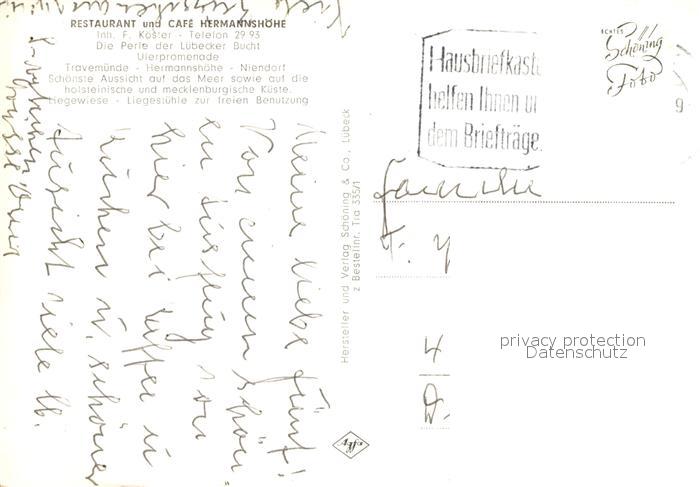 RESTAURANT und CAFÉ HERMANNSHÖHE
Inh. F. Köster - Telefon 29 93
Die Perle der Lübecker Bucht
Uferpromenade
Travemünde - Hermannshöhe - Niendorf
Schönste Aussicht auf das Meer sowie auf die
holsteinische und mecklenburgische Küste.
Liegewiese - Liegestühle zur freien Benutzung
Meine liebe
Von einem schön
en Ausflug von
hier bei Kaffee u
Kuchen u. schöner
Aussicht viele lb.
Hersteller und Verlag Schöning & Co., Lübeck
z Bestellnr. Tra 335/1
Agfa
Hausbriefkaste
helfen Ihnen u
dem Briefträge
ECHTES
Schöning
Foto
9
Familie
F. y
4
D.
privacy protection
Datenschutz